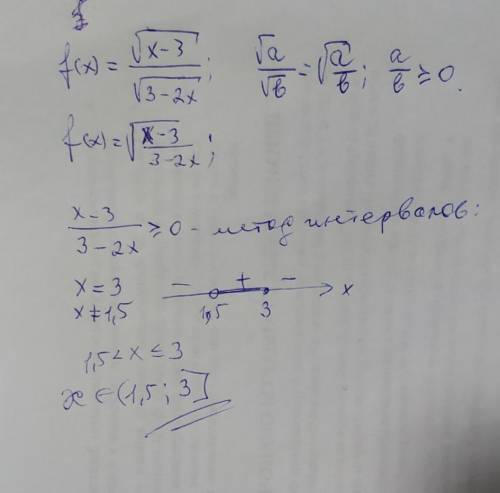 f(x) = √(x-3) / √(3-2x); √a/√b = √(a/b); a/b ≥ 0.
f(x) = √((x-3)/(3-2x));
(x-3)/(3-2x) ≥ 0 - метод интервалов:
x = 3
x ≠ 1,5
- + - x
1,5 3
1,5 < x ≤ 3
x ∈ (1,5; 3]